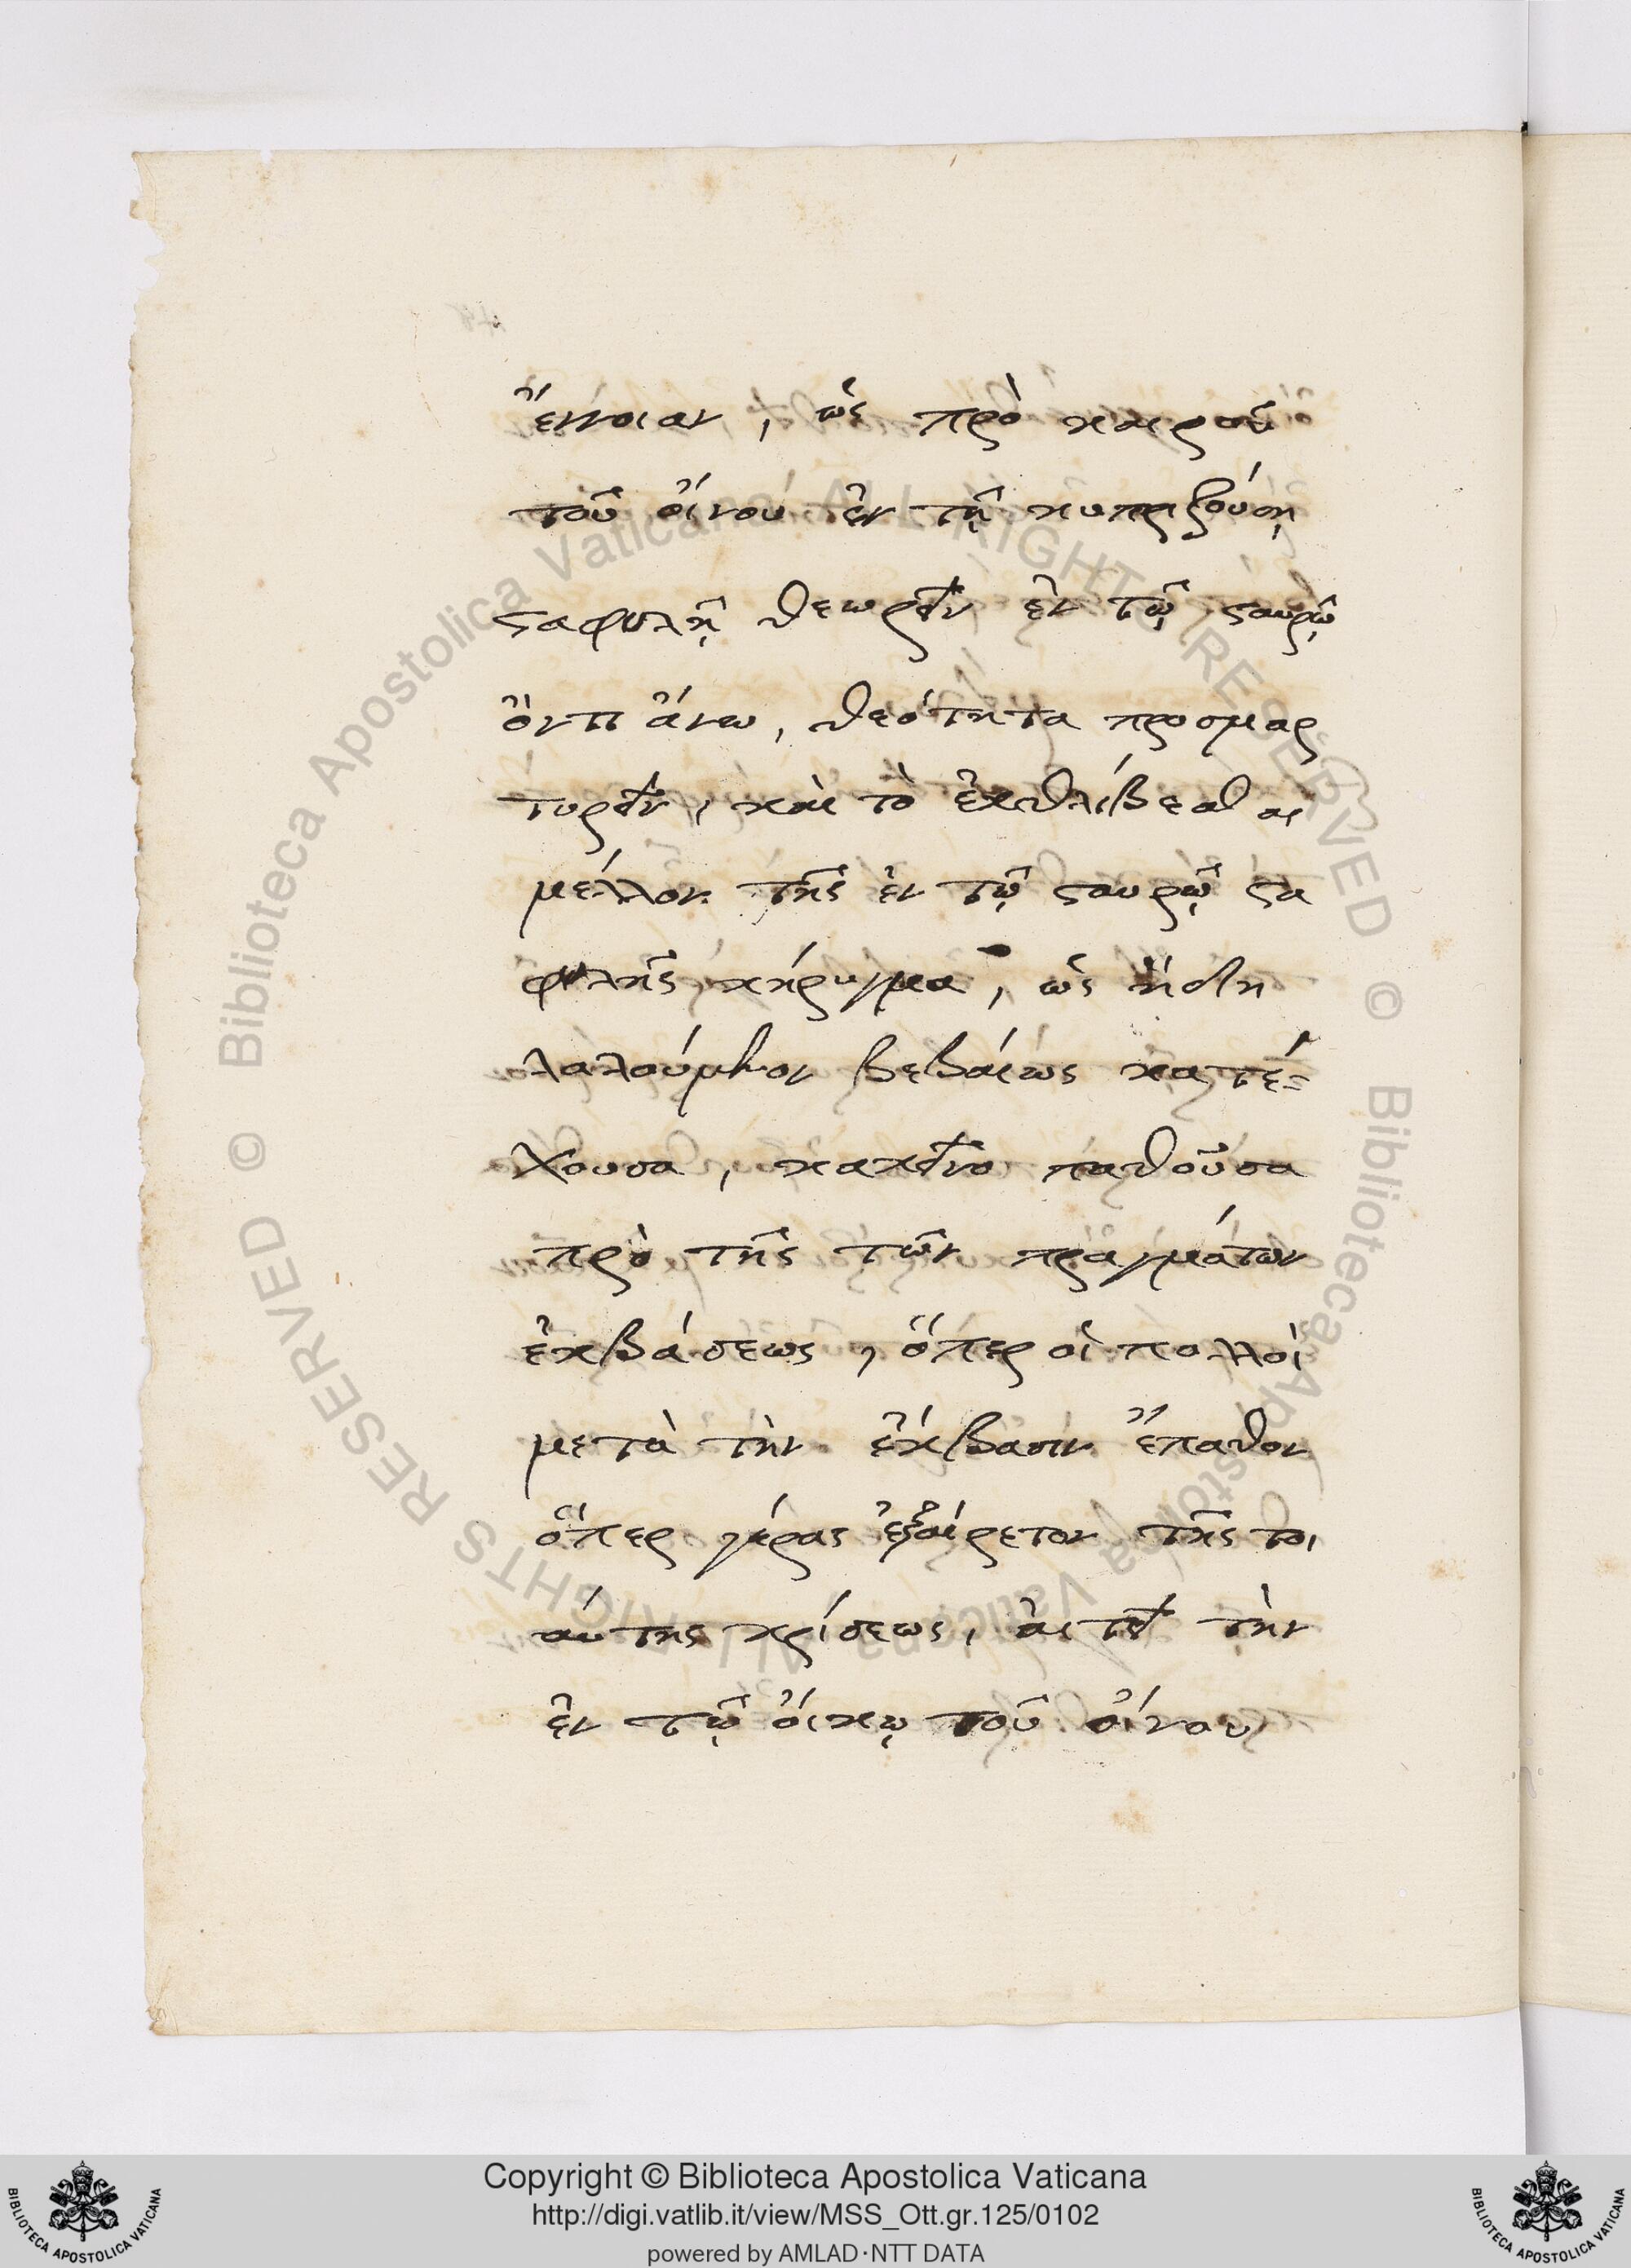 ἔννοιαν, ὡς πρὸ καιροῦ
τοῦ οἴνου ἐν τῇ κυπριζούσῃ
σταφυλῇ θεωρεῖν ἐν τῷ σταυρῷ
ὄντι ἄνω, θεότητα προσμαρ
τυρεῖν, καὶ τὸ ἐκθλίβεσθαι
μέλλον τῆς ἐν τῷ σταυρῷ στα
φυλῆς κήρυγμα, ὡς ἤδη
λαλούμενον βεβαίως κατέ-
χουσα, κακεῖνο παθοῦσα
πρὸ τῆς τῶν πραγμάτων
ἐκβάσεως, ὅπερ οἱ πολλοὶ
μετὰ τὴν ἔκβασιν ἔπαθον
ὅπερ γέρας ἐξαίρετον τῆς τοι
αύτης κρίσεως, αἰτεῖ τὴν
ἐν τῷ οἴκῳ τοῦ οἴνου
© Biblioteca Apostolica Vaticana ALL RIGHTS RESERVED © Biblioteca Apostolica Vaticana ALL RIGHTS RESERVED
Copyright © Biblioteca Apostolica Vaticana
http://digi.vatlib.it/view/MSS_Ott.gr.125/0102
powered by AMLAD·NTT DATA
BIBLIOTECA APOSTOLICA VATICANA
BIBLIOTECA APOSTOLICA VATICANA